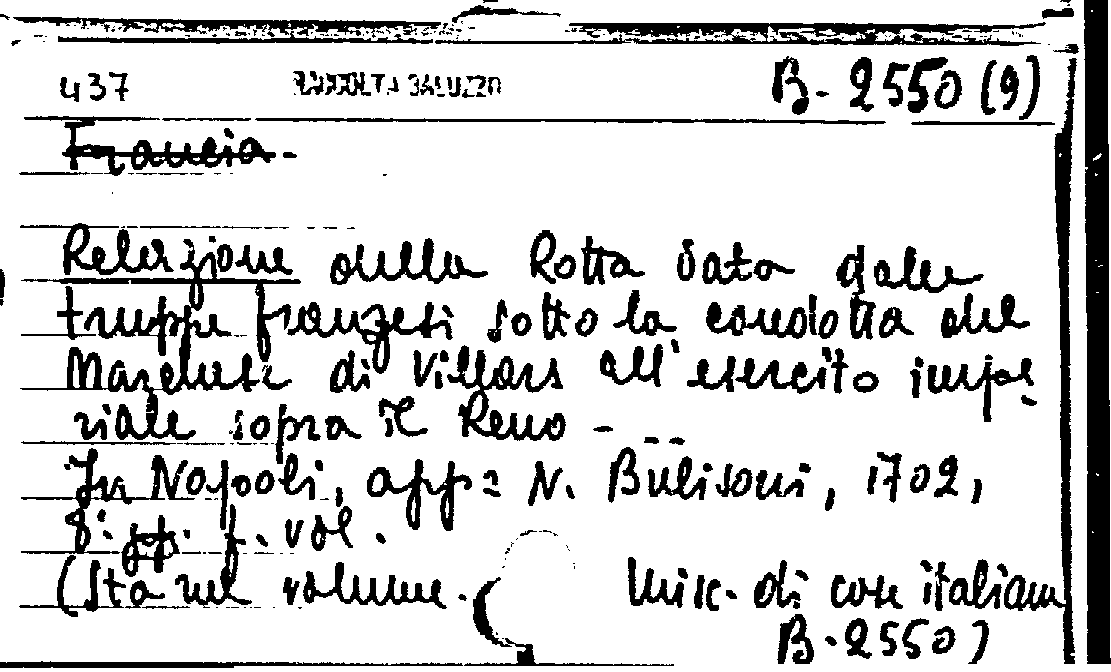 437 RACCOLTA SALUZZO B. 2550 (9)
Francia -
Relazione della Rotta data dalle
truppe franzesi sotto la condotta del
Marchese di Villars all'esercito impe-
riale sopra il Reno - ---
In Napoli, app: N. Bulisoni, 1702,
8: pp. f. vol.
(Sta nel volume. Misc. di cose italiane
B. 2550)